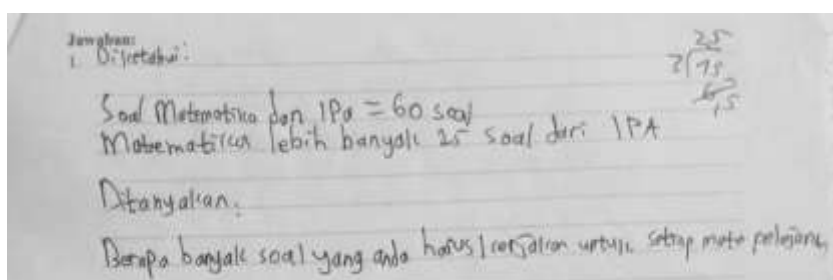 Jawaban:
1. Diketahui:
25
3 75
6
15
Soal Matematika dan IPA = 60 soal
Matematika lebih banyak 25 soal dari IPA
Ditanyakan:
Berapa banyak soal yang anda harus kerjakan untuk setiap mata pelajaran